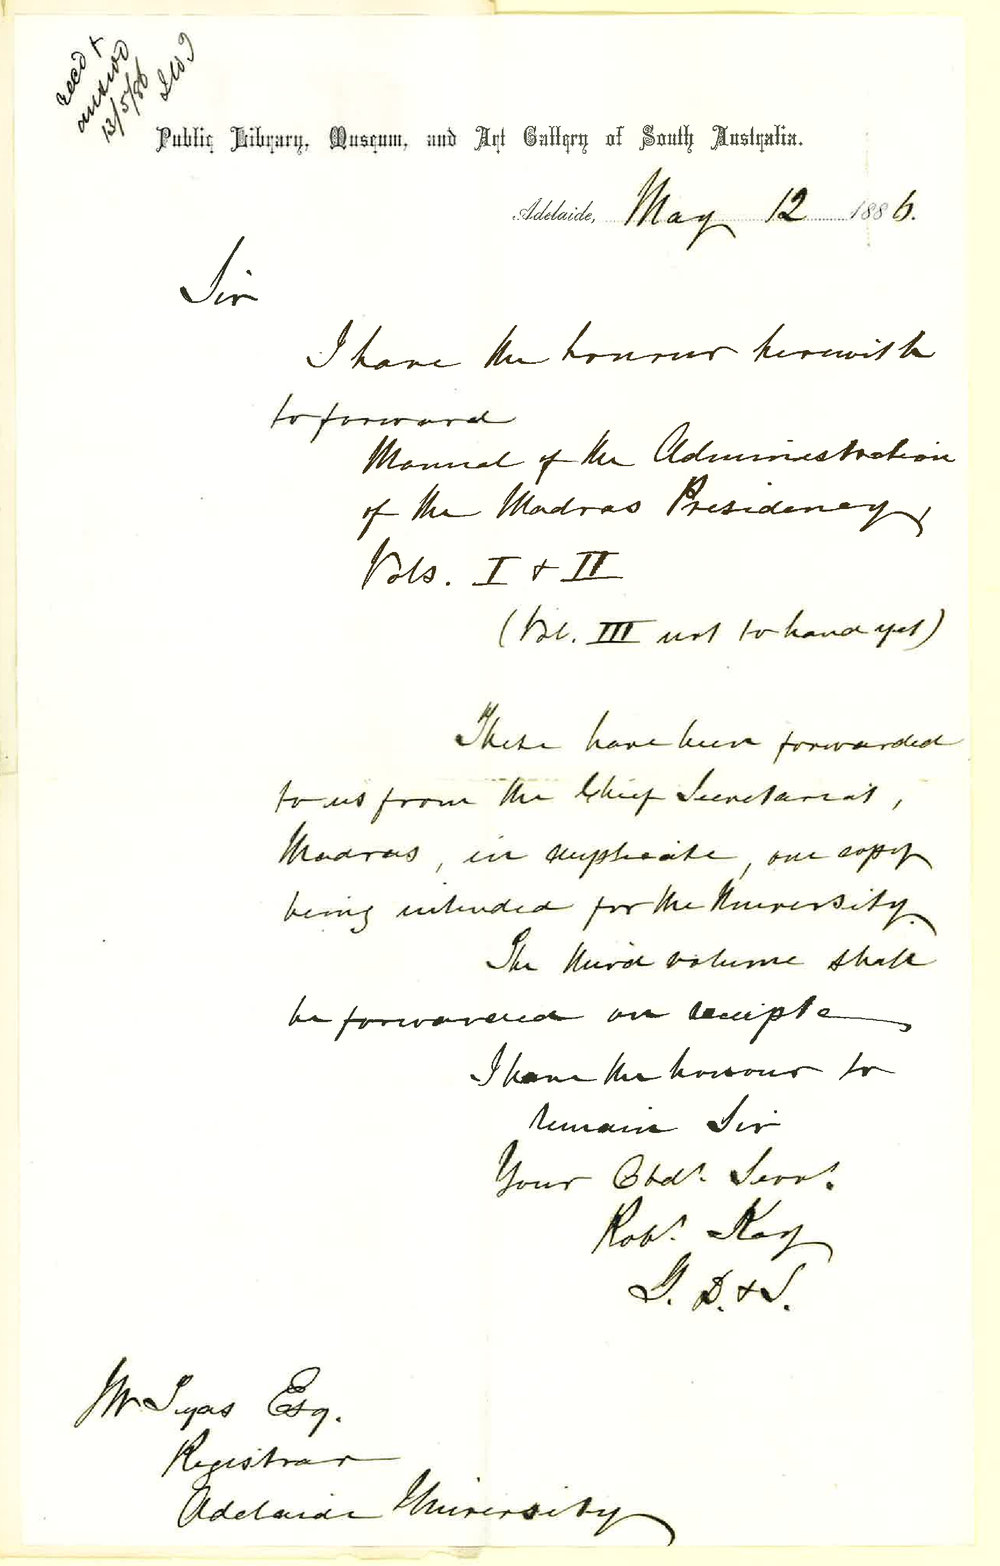 recd &
answd
13/5/86
Public Library, Museum, and Art Gallery of South Australia.
Adelaide, May 12 1886.
Sir
I have the honour herewith
to forward
Manual of the Administration
of the Madras Presidency,
Vols. I & II
(Vol. III not to hand yet)
These have been forwarded
to us from the Chief Secretariat,
Madras, in duplicate, one copy
being intended for the University.
The third volume shall
be forwarded on receipt
I have the honour to
remain Sir
Your Obdt. Servt.
Robt. Kay
G. D. & S.
J W Tyas Esq.
Registrar
Adelaide University